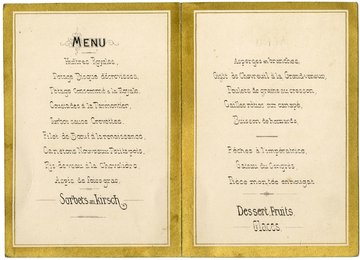 MENU
Huîtres Royales,
Potage Bisque d'écrevisses,
Potage Consommé à la Royale,
à la Parmentier,
Turbot sauce Crevettes,
Filet de Bœuf à la renaissance,
Canetons Nouveaux
Ris de veau à la
Aspic de foies gras,
Sorbets au Kirsch
Asperges en branches,
de Chevreuil à la
Poulets de grains au cresson,
Cailles rôties sur canapé,
Buisson de homards,
Pêches à l'impératrice,
Gateau du Congrès
Pièce montée en nougat
Dessert, Fruits,
Glaces.